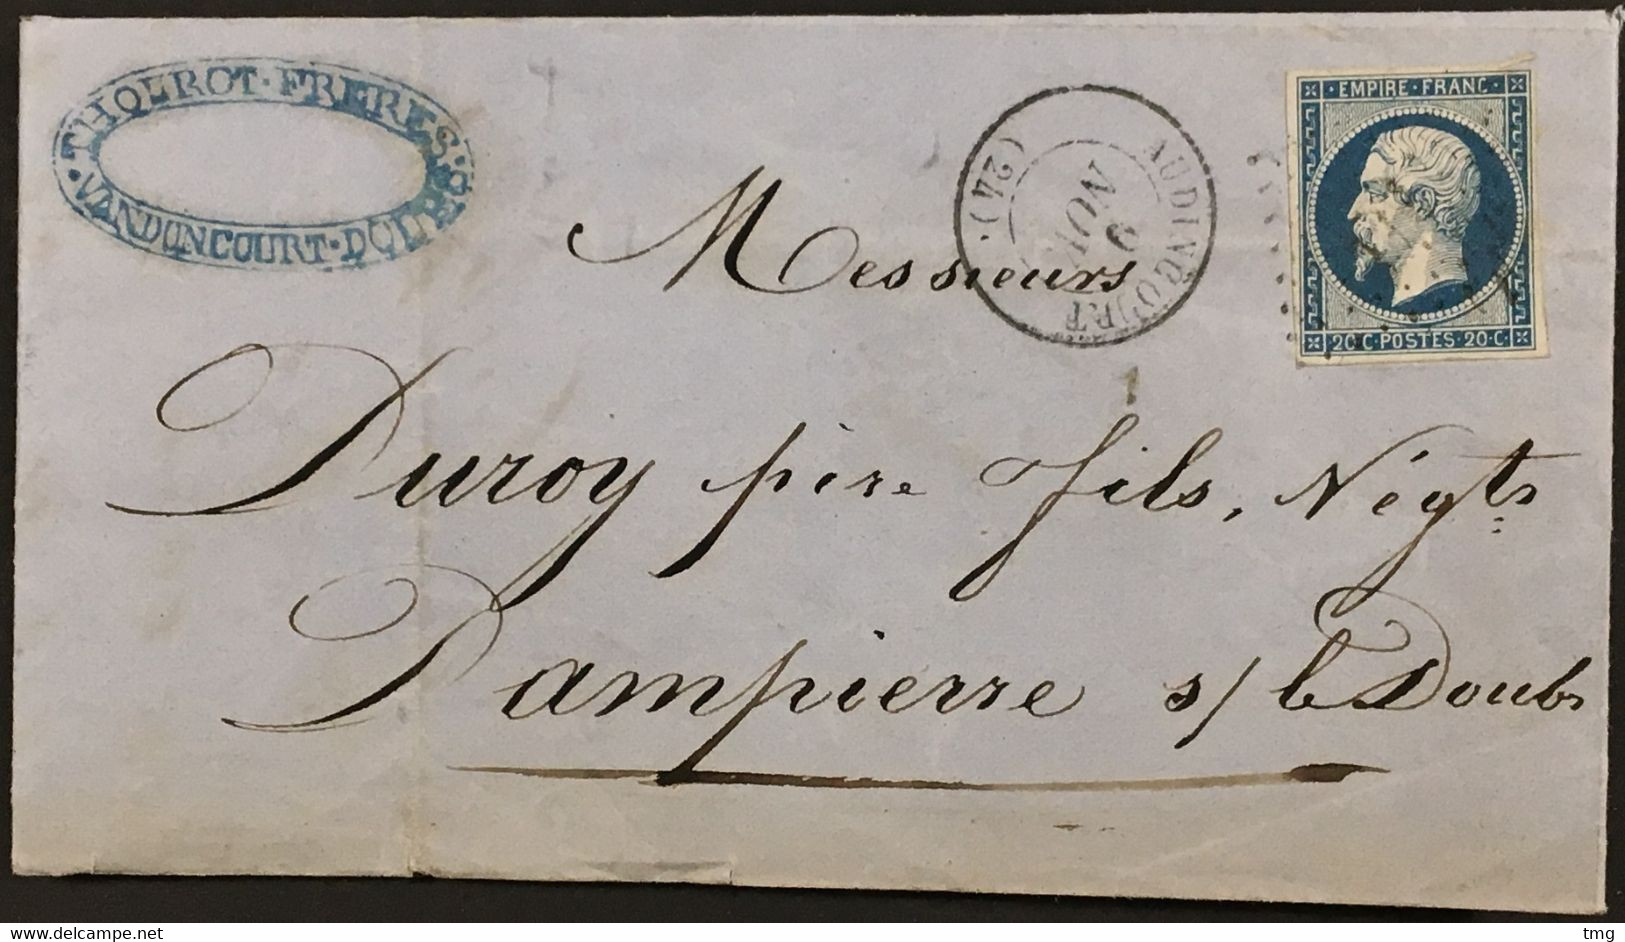 THOUROT·FRERES·&
·VANDONCOURT·DOUBS
AUDINCOURT
9
NOV.
(24)
·EMPIRE·FRANC·
20·C·POSTES·20·C·
Messieurs
Duroy père fils, Négts
Dampierre s/ le Doubs
www.delcampe.net
tmg